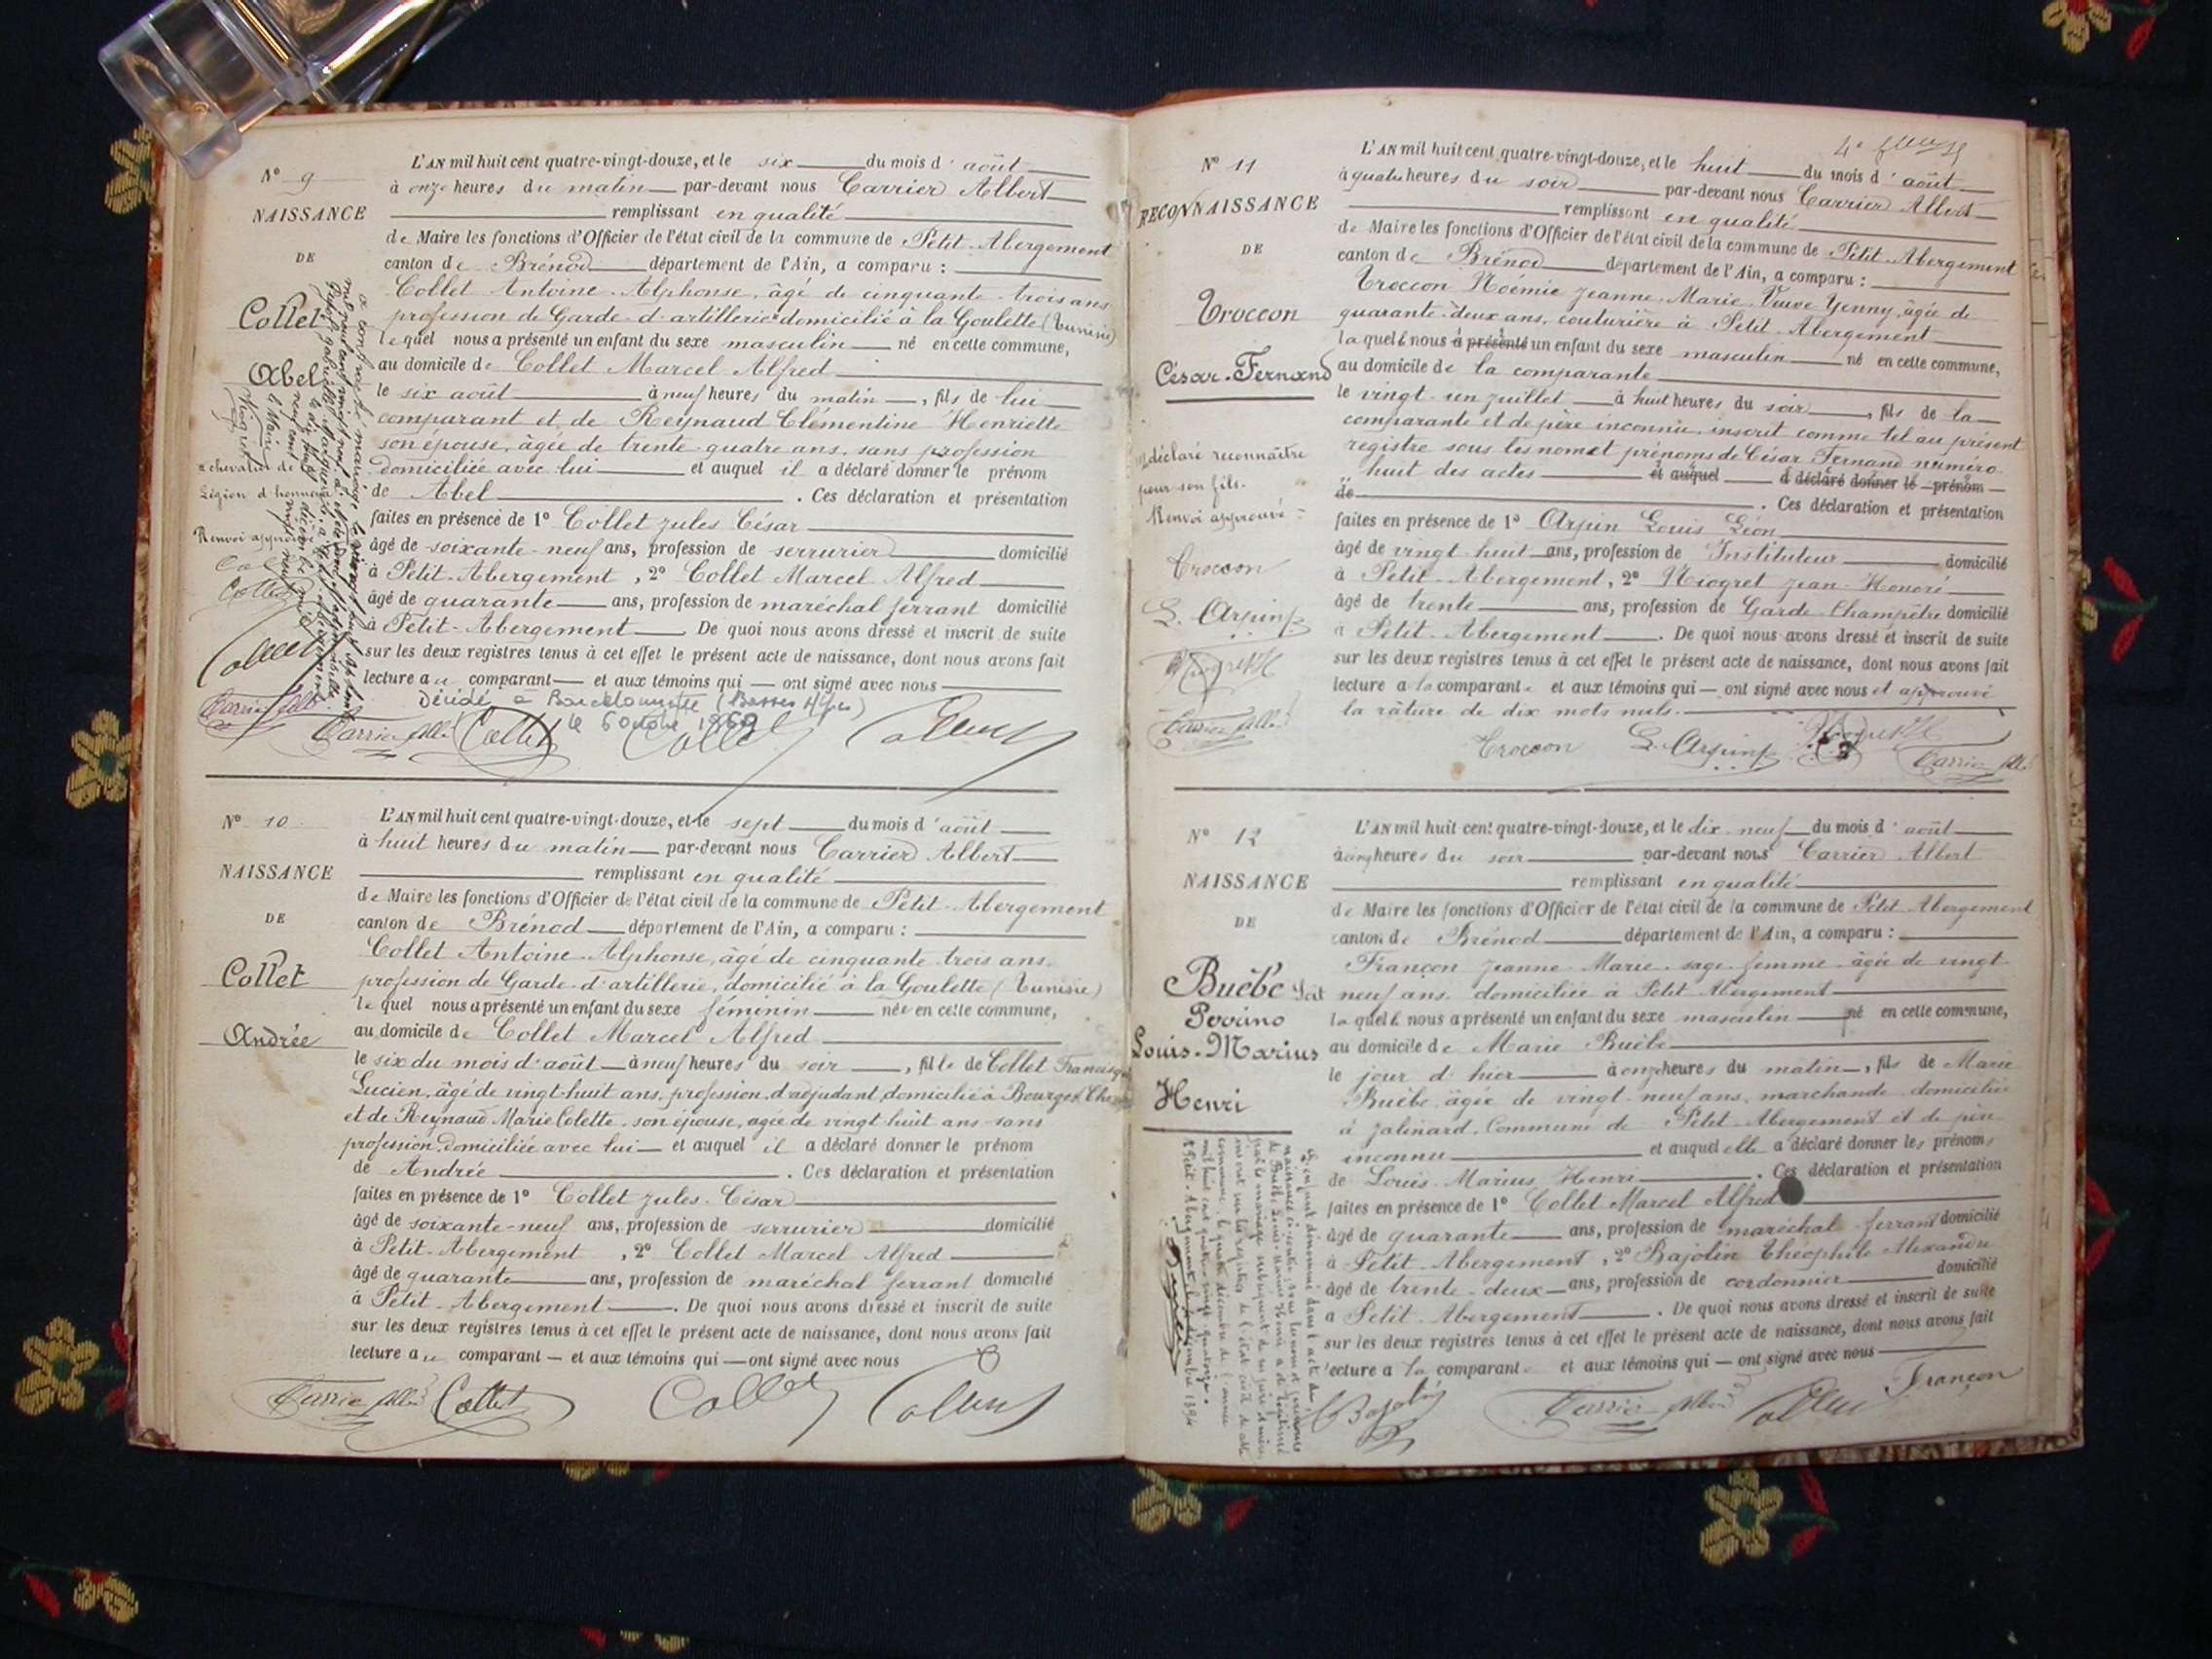 N° 9
NAISSANCE
DE
Collet
Abel
L'AN mil huit cent quatre-vingt-douze, et le six du mois d'août
à onze heures du matin par-devant nous Carrier Albert
remplissant en qualité
de Maire les fonctions d'Officier de l'état civil de la commune de Petit-Abergement
canton de Brénod département de l'Ain, a comparu :
Collet Antoine Alphonse, âgé de cinquante-trois ans
profession de Garde-d'artillerie domicilié à la Goulette (Tunisie)
lequel nous a présenté un enfant du sexe masculin né en cette commune,
au domicile de Collet Marcel Alfred
le six août à neuf heures du matin, fils de lui
comparant et de Reynaud Clémentine Henriette
son épouse, âgée de trente-quatre ans, sans profession
domiciliée avec lui et auquel il a déclaré donner le prénom
de Abel. Ces déclaration et présentation
faites en présence de 1° Collet Jules César
âgé de soixante-neuf ans, profession de serrurier domicilié
à Petit-Abergement, 2° Collet Marcel Alfred
âgé de quarante ans, profession de maréchal ferrant domicilié
à Petit-Abergement De quoi nous avons dressé et inscrit de suite
sur les deux registres tenus à cet effet le présent acte de naissance, dont nous avons fait
lecture au comparant et aux témoins qui ont signé avec nous
chevalier de
Légion d'honneur
Renvoi approuvé
Décédé à Barcelonnette (Basses Alpes)
Collet
N° 10
NAISSANCE
DE
Collet
Andrée
L'AN mil huit cent quatre-vingt-douze, et le sept du mois d'août
à huit heures du matin par-devant nous Carrier Albert
remplissant en qualité
de Maire les fonctions d'Officier de l'état civil de la commune de Petit-Abergement
canton de Brénod département de l'Ain, a comparu :
Collet Antoine-Alphonse, âgé de cinquante trois ans
profession de Garde-d'artillerie, domicilié à la Goulette (Tunisie)
lequel nous a présenté un enfant du sexe féminin née en cette commune,
au domicile de Collet Marcel Alfred
le six du mois d'août à neuf heures du soir, fille de Collet
Lucien, âgé de vingt-huit ans, profession d'adjudant, domicilié à Bourges
et de Reynaud Marie Colette son épouse, agée de vingt huit ans sans
profession, domiciliée avec lui et auquel il a déclaré donner le prénom
de Andrée. Ces déclaration et présentation
faites en présence de 1° Collet Jules César
âgé de soixante-neuf ans, profession de serrurier domicilié
à Petit-Abergement, 2° Collet Marcel Alfred
âgé de quarante ans, profession de maréchal ferrant domicilié
à Petit-Abergement. De quoi nous avons dressé et inscrit de suite
sur les deux registres tenus à cet effet le présent acte de naissance, dont nous avons fait
lecture au comparant et aux témoins qui ont signé avec nous
Collet
N° 11
RECONNAISSANCE
DE
Troccon
César-Fernand
L'AN mil huit cent quatre-vingt-douze, et le huit du mois d'août
à quatre heures du soir par-devant nous Carrier Albert
remplissant en qualité
de Maire les fonctions d'Officier de l'état civil de la commune de Petit-Abergement
canton de Brénod département de l'Ain, a comparu :
Troccon Noémie Jeanne-Marie Veuve Yenny, âgée de
quarante-deux ans, couturière à Petit-Abergement
laquelle nous a présenté un enfant du sexe masculin né en cette commune,
au domicile de la comparante
le vingt-un juillet à huit heures du soir, fils de la
comparante et de père inconnu, inscrit comme tel au présent
registre sous les nom et prénoms de César Fernand numéro
huit des actes et auquel a déclaré donner le prénom
de. Ces déclaration et présentation
faites en présence de 1° Arpin Louis Léon
âgé de vingt-huit ans, profession de Instituteur domicilié
à Petit-Abergement, 2° Niogret Jean-Honoré
âgé de trente ans, profession de Garde-Champêtre domicilié
à Petit-Abergement. De quoi nous avons dressé et inscrit de suite
sur les deux registres tenus à cet effet le présent acte de naissance, dont nous avons fait
lecture a la comparante et aux témoins qui ont signé avec nous et approuvé
la râture de dix mots nuls.
déclaré reconnaître
pour son fils.
Renvoi approuvé
Troccon
L. Arpin
Troccon L. Arpin
N° 12
NAISSANCE
DE
Buèbe
Louis-Marius
Henri
L'AN mil huit cent quatre-vingt-douze, et le dix-neuf du mois d'août
à cinq heures du soir par-devant nous Carrier Albert
remplissant en qualité
de Maire les fonctions d'Officier de l'état civil de la commune de Petit-Abergement
canton de Brénod département de l'Ain, a comparu :
Françon Jeanne Marie sage-femme âgée de vingt
neuf ans, domiciliée à Petit Abergement
laquelle nous a présenté un enfant du sexe masculin né en cette commune,
au domicile de Marie Buèbe
le jour d'hier à onze heures du matin, fils de Marie
Buèbe âgée de vingt-neuf ans, marchande domiciliée
à Jalinard, Commune de Petit Abergement et de père
inconnu et auquel elle a déclaré donner les prénoms
de Louis Marius Henri. Ces déclaration et présentation
faites en présence de 1° Collet Marcel Alfred
âgé de quarante ans, profession de maréchal-ferrant domicilié
à Petit-Abergement, 2° Bajolin Théophile Alexandre
âgé de trente-deux ans, profession de cordonnier domicilié
a Petit-Abergement. De quoi nous avons dressé et inscrit de suite
sur les deux registres tenus à cet effet le présent acte de naissance, dont nous avons fait
lecture a la comparante et aux témoins qui ont signé avec nous
Françon